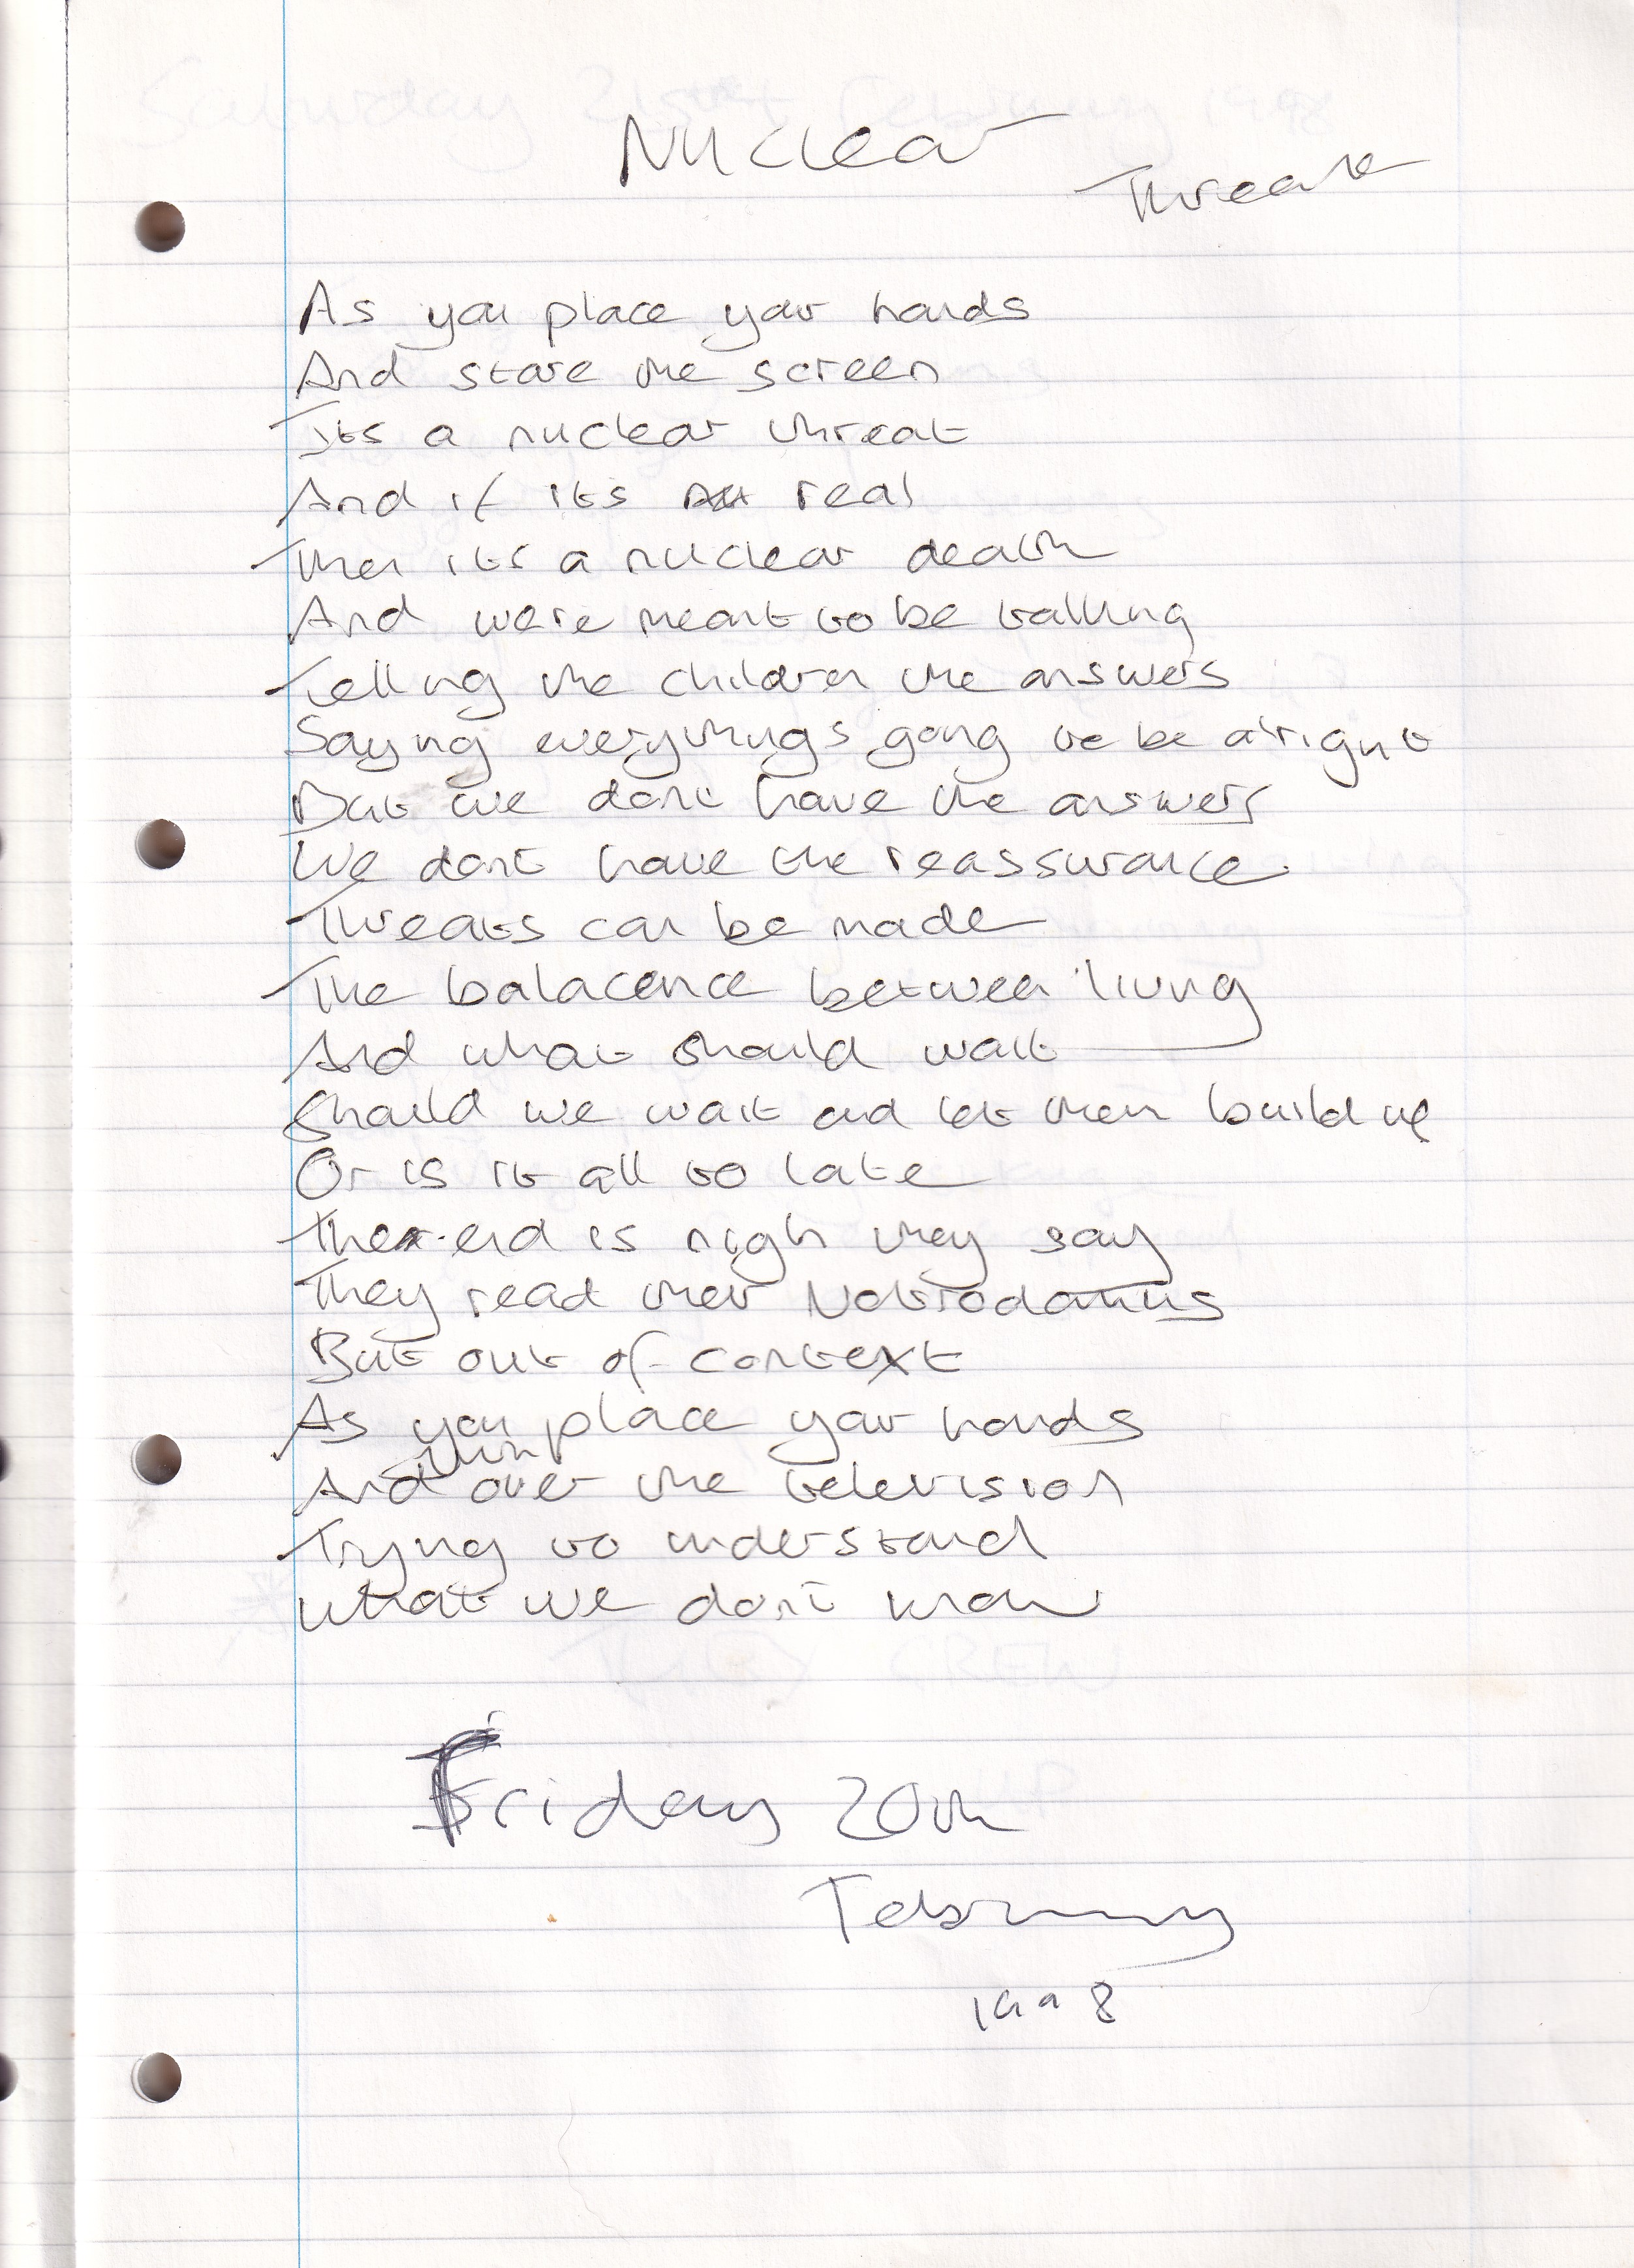 Nuclear
Threat
As you place your hands
And stare the screen
Its a nuclear threat
And if its real
Then its a nuclear death
And were meant to be talking
Telling the children the answers
Saying everythings going to be alright
But we dont have the answers
We dont have the reassurance
Threats can be made
The balacence between living
And what should wait
Should we wait and let them build up
Or is it all to late
The end is nigh they say
They read their Nostrodamus
But out of context
As you place your hands
And over the television
Trying to understand
What we don't know
Friday 20th
February
1998